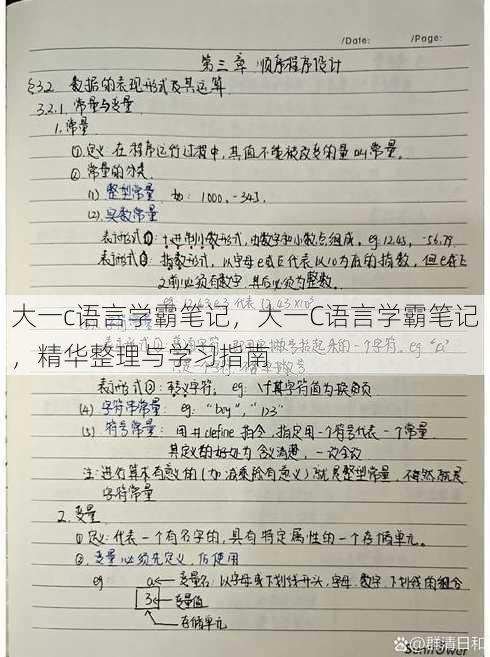 /Date: /Page:
第三章 顺序程序设计
§3.2 数据的表现形式及其运算
3.2.1 常量与变量
1.常量
①定义:在程序运行过程中,其值不能被改变的量叫常量。
②常量的分类
(1) 整型常量 如:1000、-345、
(2) 实数常量
表示形式①:十进制小数形式,由数字和小数点组成。eg 12.43、-56.79
表示形式②:指数形式,以字母e或E代表以10为底的指数,但e或E
之前必须有数字,其后必须为整数。
大一c语言学霸笔记,大一C语言学霸笔记
,精华整理与学习指南
表示形式②:转义字符, eg: \f其字符值为换页
(4) 字符串常量: eg: "boy", "123"
(5) 符号常量: 用#define 指令,指定用一个符号代表一个常量
其定义的好处为含义清楚,一改全改
注:进行算术有意义的(加减乘除有意义)就是整型常量,不然就是
字符常量
2.变量
①定义:代表一个有名字的,具有特定属性的一个存储单元。
②变量必须先定义,后使用
eg a 变量名:以字母或下划线开头,字母、数字、下划线的组合
3 变量值
存储单元
Sunflower
@群清日和